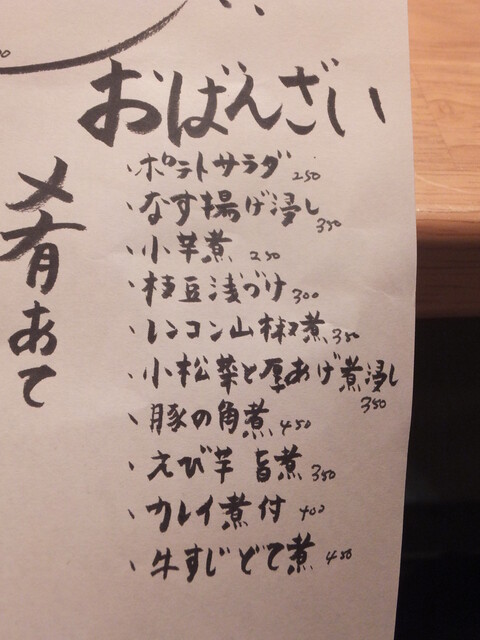 おばんざい
、ポテトサラダ 250
、なす揚げ浸し 350
、小芋煮 250
、枝豆浅づけ 300
、レンコン山椒煮 350
、小松菜と厚あげ煮浸し 350
、豚の角煮 450
、えび芋旨煮 350
、カレイ煮付 400
、牛すじどて煮 450
肴あて